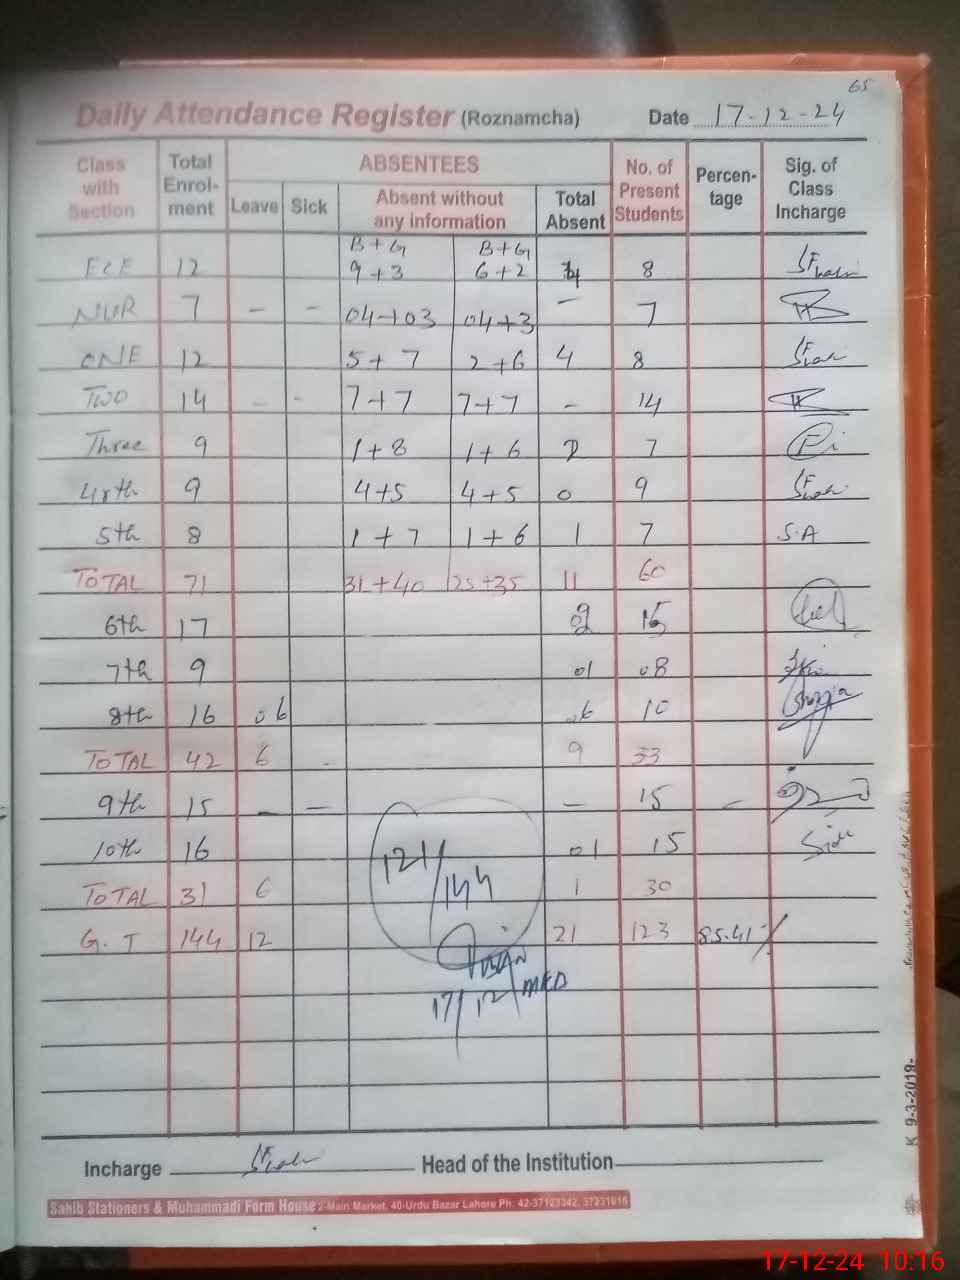 65
Daily Attendance Register (Roznamcha) Date 17-12-24
Class with Section Total Enrol-ment ABSENTEES No. of Present Students Percen-tage Sig. of Class Incharge
Leave Sick Absent without any information Total Absent
B+G B+G
ECE 12 9+3 6+2 4 8
NUR 7 – – 04+03 04+3 – 7
ONE 12 5+7 2+6 4 8
TWO 14 – – 7+7 7+7 – 14
Three 9 1+8 1+6 2 7
4rth 9 4+5 4+5 0 9
5th 8 1+7 1+6 1 7 S.A
TOTAL 71 31+40 25+35 11 60
6th 17 15
7th 9 01 08
8th 16 06 06 10
TOTAL 42 6 - 9 33
9th 15 – – – 15 –
10th 16 01 15
TOTAL 31 6 1 30
G.T 144 12 21 123 85.41%
121/144
17/12
Incharge Head of the Institution
Sahib Stationers & Muhammadi Form House 2-Main Market, 40-Urdu Bazar Lahore Ph: 42-37123342, 37231016
K 9-3-2019-
17-12-24 10:16